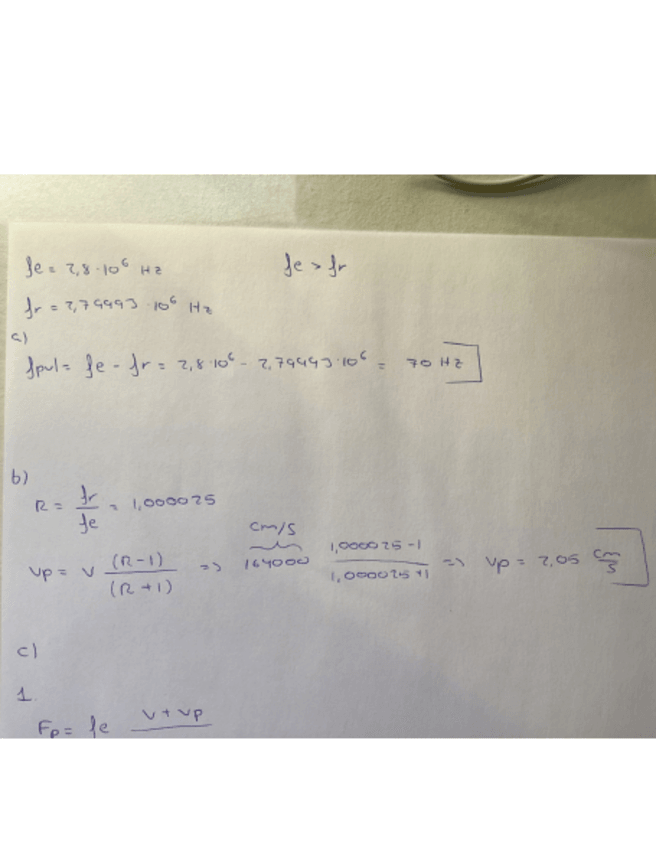 fe = 2,8·10⁶ Hz fe > fr
fr = 2,79993·10⁶ Hz
a)
fpul = fe - fr = 2,8·10⁶ - 2,79993·10⁶ = 70 Hz
b)
R = fr/fe = 1,000025
cm/s
vp = v (R-1)/(R+1) => 164000 1,000025-1/1,000025+1 => vp = 2,05 cm/s
c)
1.
Fp = fe v + vp